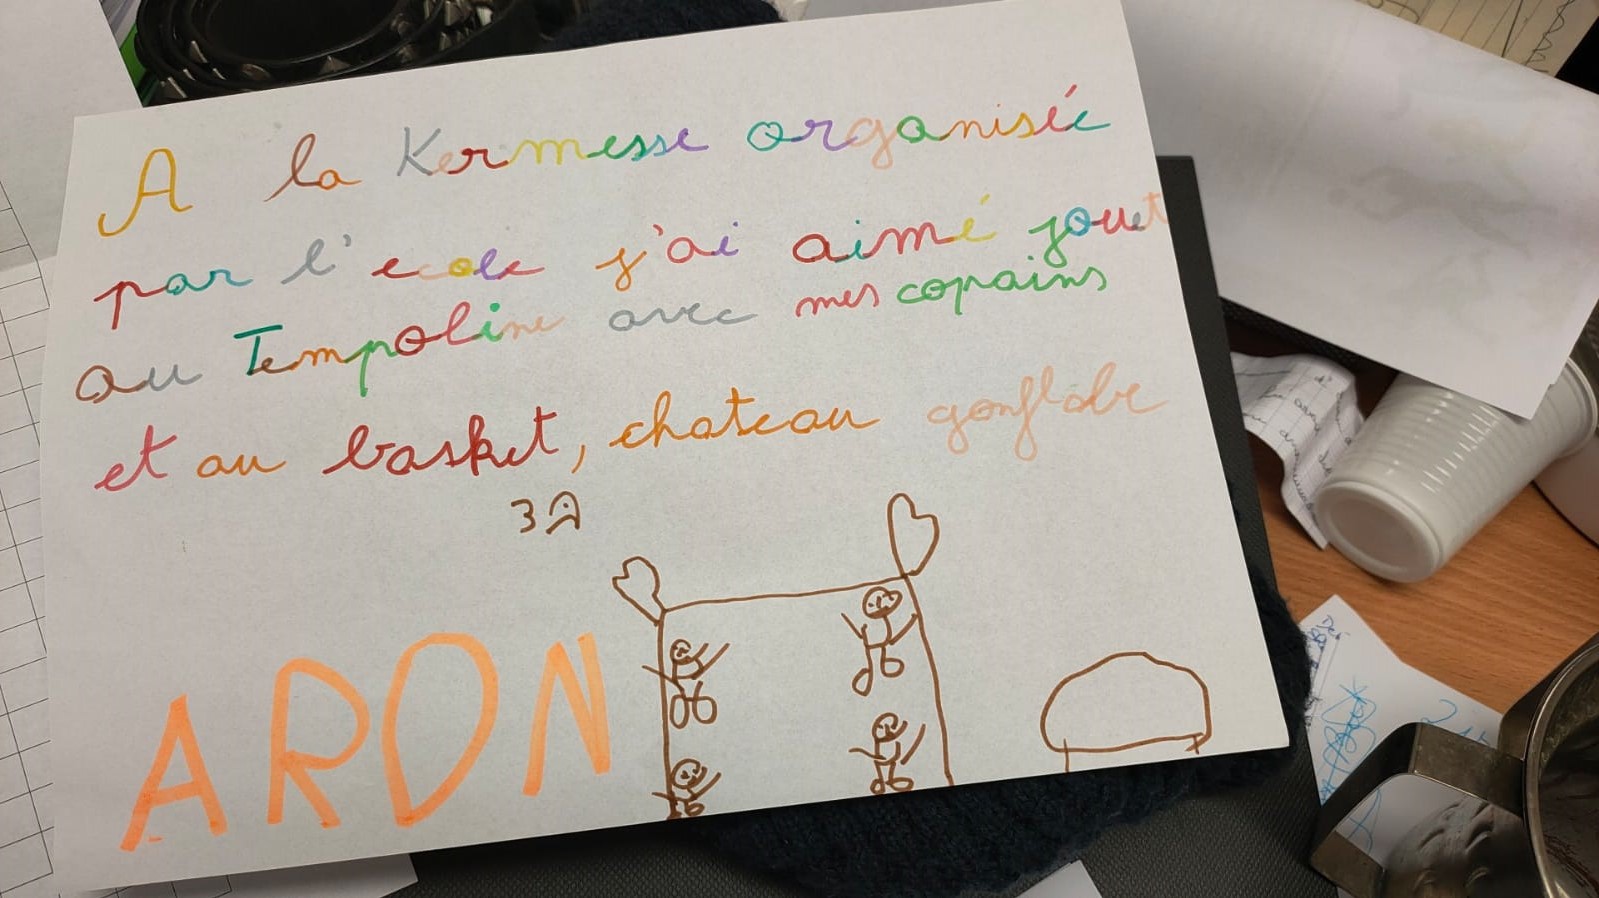 A la Kermesse organisée
par l'ecole j'ai aimé jouet
au Tempoline avec mes copains
et au basket, chateau gonflabe
ARON